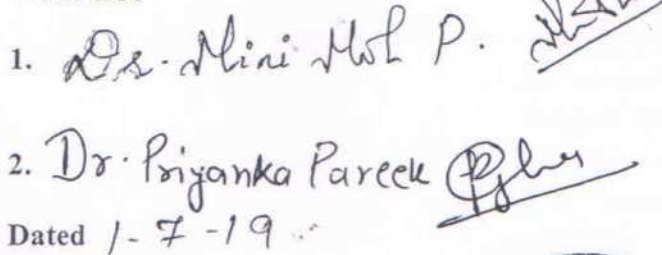 1. Dr. Mini Mol P.
2. Dr. Priyanka Pareek
Dated 1-7-19